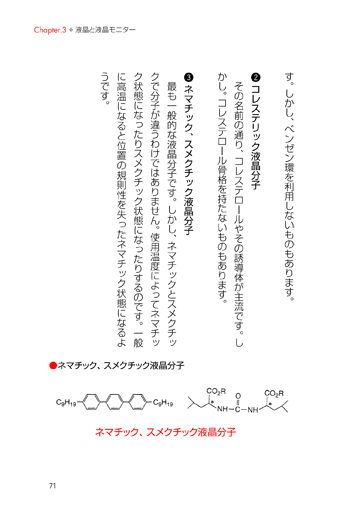 Chapter.3 ◆ 液晶と液晶モニター
す。しかし、ベンゼン環を利用しないものもあります。
❷ コレステリック液晶分子
その名前の通り、コレステロールやその誘導体が主流です。し
かし、コレステロール骨格を持たないものもあります。
❸ ネマチック、スメクチック液晶分子
最も一般的な液晶分子です。しかし、ネマチックとスメクチッ
クで分子が違うわけではありません。使用温度によってネマチッ
ク状態になったりスメクチック状態になったりするのです。一般
に高温になると位置の規則性を失ったネマチック状態になるよ
うです。
●ネマチック、スメクチック液晶分子
C₉H₁₉ C₉H₁₉
CO₂R O CO₂R
* NH-C-NH *
ネマチック、スメクチック液晶分子
71